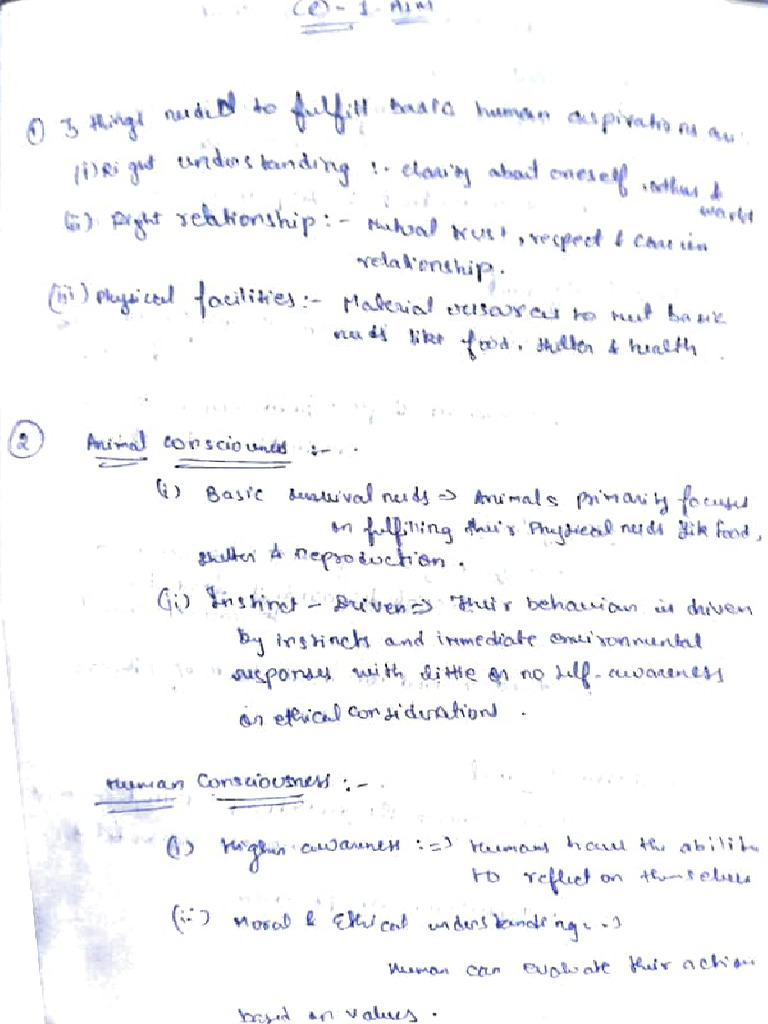 ① 3 things needed to fulfill basic human aspirations are
(i) Right understanding :- clarity about oneself, others &
world
(ii) Right relationship :- Mutual trust, respect & care in
relationship.
(iii) Physical facilities :- Material resources to meet basic
needs like food, shelter & health
② Animal consciouness :-
(i) Basic survival needs => Animals primarily focused
on fulfilling their Physical needs like food,
shelter & reproduction.
(ii) Instinct - Driven => Their behaviour is driven
by instincts and immediate environmental
responses with little or no self-awareness
or ethical considerations.
Human Consciousness :-
(i) Higher awareness :=> Humans have the ability
to reflect on themselves
(ii) Moral & Ethical understanding :->
Human can evaluate their action
based on values.